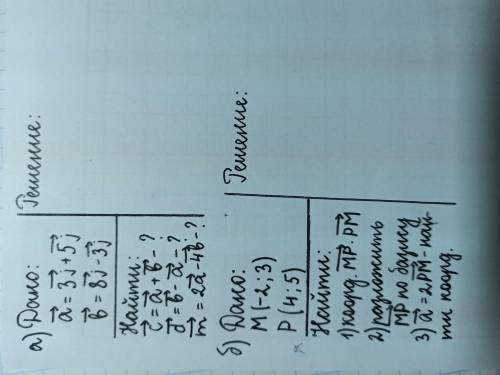 а) Дано:
a⃗ = 3j⃗ + 5j⃗
b⃗ = 8i⃗ - 3j⃗
Найти:
c⃗ = a⃗ + b⃗ - ?
d⃗ = b⃗ - a⃗ - ?
m⃗ = 2a⃗ - 4b⃗ - ?
Решение:
б) Дано:
M(-2; 3)
P(4; 5)
Найти:
1) коорд. MP⃗. PM⃗
2) разложить
MP⃗ по базису
3) a⃗ = 2PM⃗ - най-
ти коорд.
Решение: